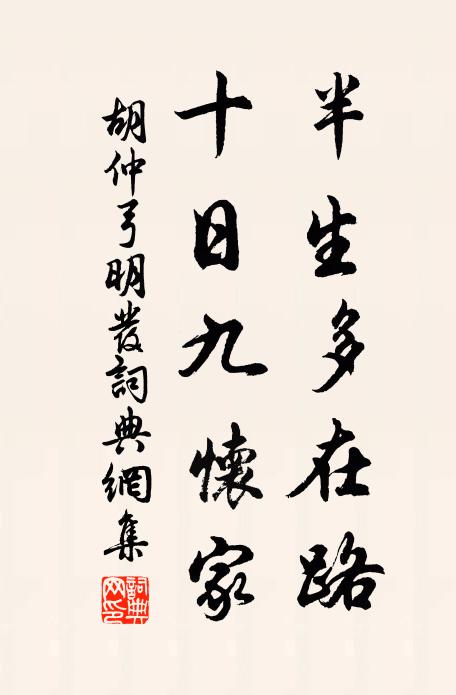 半生多在路
十日九懷家
胡仲弓明發詞典網集
詞典網印